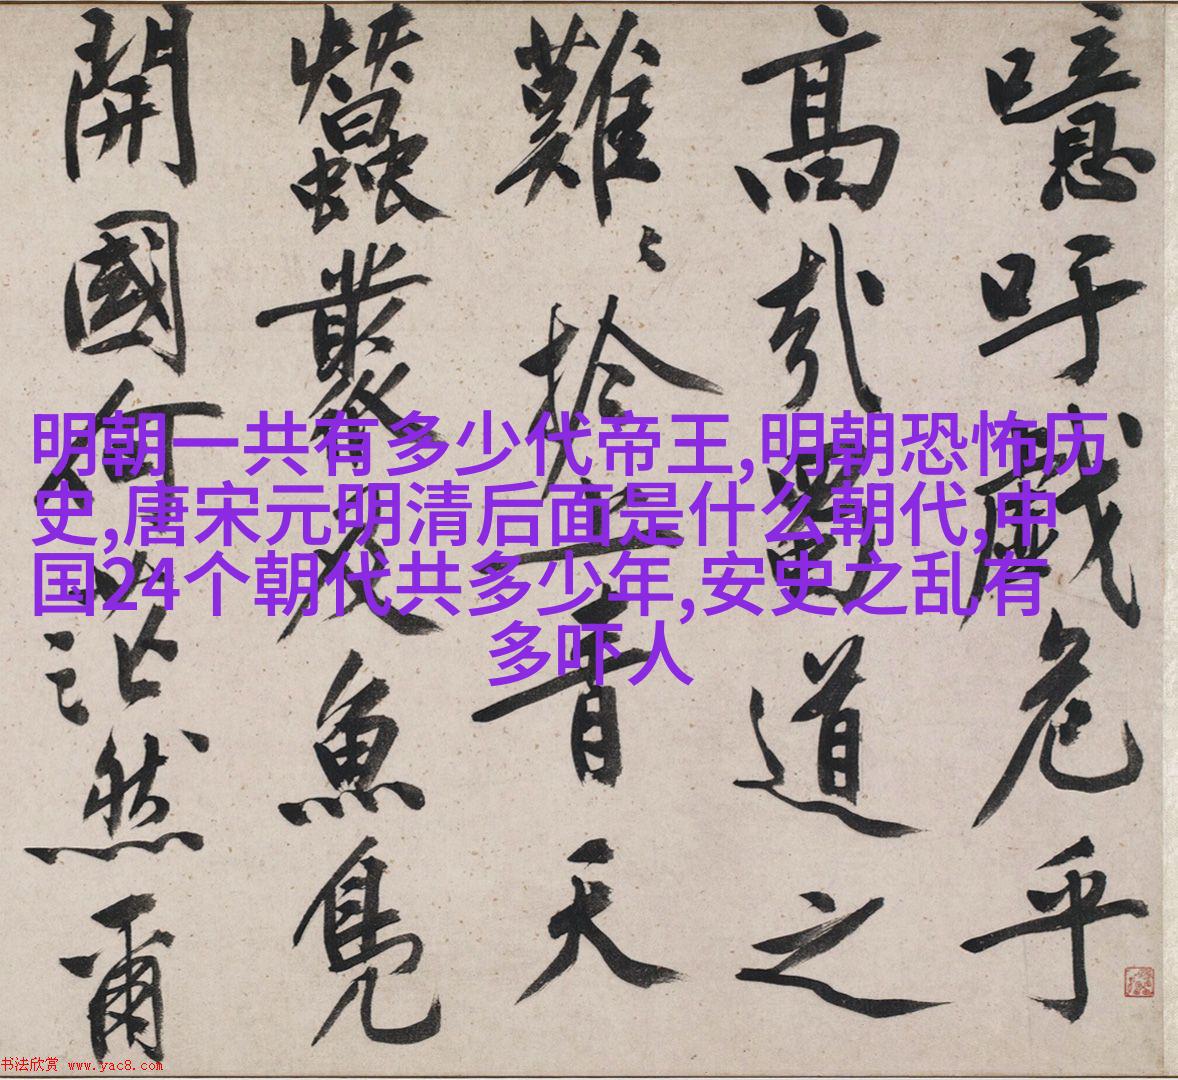 噫吁戲危乎
高哉蜀道之
難〻於上青天
蠶叢及魚鳧
開國何以茫然爾
明朝一共有多少代帝王,明朝恐怖历
史,唐宋元明清后面是什么朝代,中
国24个朝代共多少年,安史之乱有
多吓人
书法欣赏 www.yac8.com